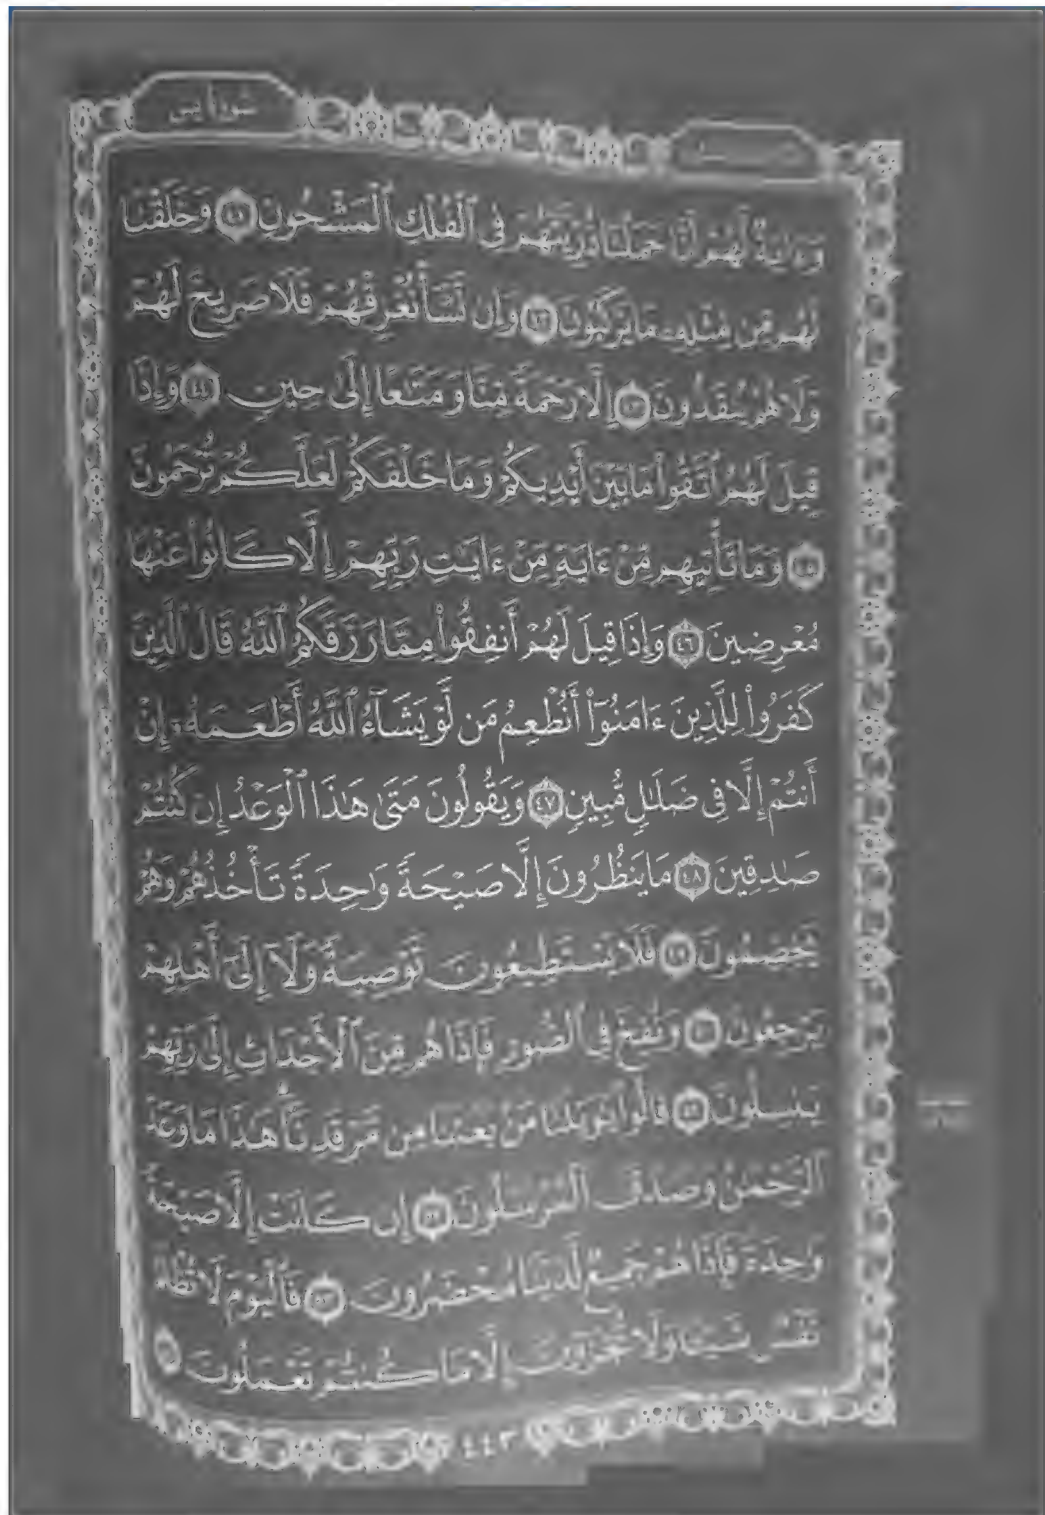 سُورَةُ يسٓ
وَءَايَةٌ لَّهُمْ أَنَّا حَمَلْنَا ذُرِّيَّتَهُمْ فِى ٱلْفُلْكِ ٱلْمَشْحُونِ ٤١ وَخَلَقْنَا
لَهُم مِّن مِّثْلِهِۦ مَا يَرْكَبُونَ ٤٢ وَإِن نَّشَأْ نُغْرِقْهُمْ فَلَا صَرِيخَ لَهُمْ
وَلَا هُمْ يُنقَذُونَ ٤٣ إِلَّا رَحْمَةً مِّنَّا وَمَتَٰعًا إِلَىٰ حِينٍ ٤٤ وَإِذَا
قِيلَ لَهُمُ ٱتَّقُوا۟ مَا بَيْنَ أَيْدِيكُمْ وَمَا خَلْفَكُمْ لَعَلَّكُمْ تُرْحَمُونَ
٤٥ وَمَا تَأْتِيهِم مِّنْ ءَايَةٍ مِّنْ ءَايَٰتِ رَبِّهِمْ إِلَّا كَانُوا۟ عَنْهَا
مُعْرِضِينَ ٤٦ وَإِذَا قِيلَ لَهُمْ أَنفِقُوا۟ مِمَّا رَزَقَكُمُ ٱللَّهُ قَالَ ٱلَّذِينَ
كَفَرُوا۟ لِلَّذِينَ ءَامَنُوٓا۟ أَنُطْعِمُ مَن لَّوْ يَشَآءُ ٱللَّهُ أَطْعَمَهُۥٓ إِنْ
أَنتُمْ إِلَّا فِى ضَلَٰلٍ مُّبِينٍ ٤٧ وَيَقُولُونَ مَتَىٰ هَٰذَا ٱلْوَعْدُ إِن كُنتُمْ
صَٰدِقِينَ ٤٨ مَا يَنظُرُونَ إِلَّا صَيْحَةً وَٰحِدَةً تَأْخُذُهُمْ وَهُمْ
يَخِصِّمُونَ ٤٩ فَلَا يَسْتَطِيعُونَ تَوْصِيَةً وَلَآ إِلَىٰٓ أَهْلِهِمْ
يَرْجِعُونَ ٥٠ وَنُفِخَ فِى ٱلصُّورِ فَإِذَا هُم مِّنَ ٱلْأَجْدَاثِ إِلَىٰ رَبِّهِمْ
يَنسِلُونَ ٥١ قَالُوا۟ يَٰوَيْلَنَا مَنۢ بَعَثَنَا مِن مَّرْقَدِنَا ۜ هَٰذَا مَا وَعَدَ
ٱلرَّحْمَٰنُ وَصَدَقَ ٱلْمُرْسَلُونَ ٥٢ إِن كَانَتْ إِلَّا صَيْحَةً
وَٰحِدَةً فَإِذَا هُمْ جَمِيعٌ لَّدَيْنَا مُحْضَرُونَ ٥٣ فَٱلْيَوْمَ لَا تُظْلَمُ
نَفْسٌ شَيْـًٔا وَلَا تُجْزَوْنَ إِلَّا مَا كُنتُمْ تَعْمَلُونَ ٥٤
٤٤٣